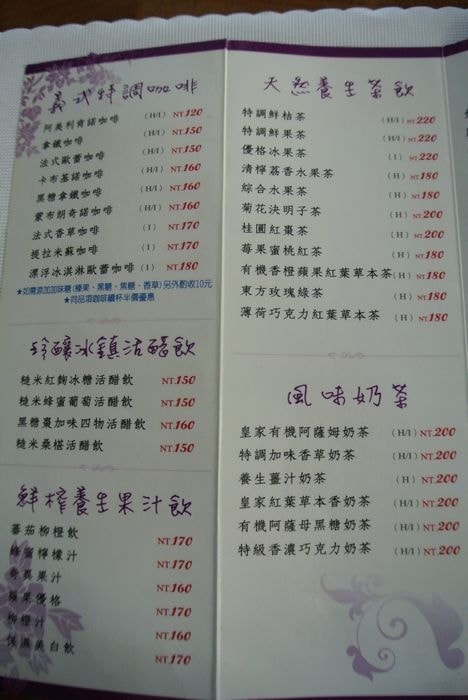 義式特調咖啡
阿美利肯諾咖啡 (H/I) NT.120
拿鐵咖啡 (H/I) NT.150
法式歐蕾咖啡 (H/I) NT.150
卡布基諾咖啡 (H/I) NT.160
黑糖拿鐵咖啡 (H/I) NT.160
蒙布朗奇諾咖啡 (H/I) NT.160
法式香草咖啡 (I) NT.170
提拉米蘇咖啡 (I) NT.170
漂浮冰淇淋歐蕾咖啡 (I) NT.180
★如需添加加味糖(榛果、黑糖、焦糖、香草)另外酌收10元
★同品項咖啡續杯半價優惠
珍釀冰鎮活醋飲
糙米紅麴冰糖活醋飲 NT.150
糙米蜂蜜葡萄活醋飲 NT.150
黑糖棗加味四物活醋飲 NT.160
糙米桑椹活醋飲 NT.150
鮮榨養生果汁飲
蕃茄柳橙飲 NT.170
蜂蜜檸檬汁 NT.170
奇異果汁 NT.160
蘋果優格 NT.170
柳橙汁 NT.160
保濕美白飲 NT.170
天然養生茶飲
特調鮮桔茶 (H/I) NT.220
特調鮮果茶 (H/I) NT.220
優格冰果茶 (I) NT.220
清檸荔香水果茶 (H/I) NT.180
綜合水果茶 (H) NT.180
菊花決明子茶 (H) NT.200
桂圓紅棗茶 (H) NT.200
莓果蜜桃紅茶 (H/I) NT.180
有機香橙蘋果紅葉草本茶 (H/I) NT.180
東方玫瑰綠茶 (H/I) NT.200
薄荷巧克力紅葉草本茶 (H/I) NT.180
風味奶茶
皇家有機阿薩姆奶茶 (H/I) NT.200
特調加味香草奶茶 (H/I) NT.200
養生薑汁奶茶 (H) NT.200
皇家紅葉草本香奶茶 (H/I) NT.200
有機阿薩母黑糖奶茶 (H/I) NT.200
特級香濃巧克力奶茶 (H/I) NT.200